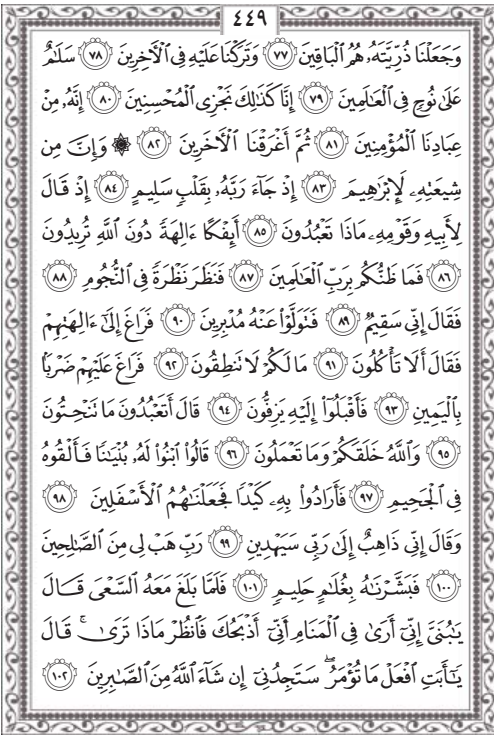 ٤٤٩
وَجَعَلْنَا ذُرِّيَّتَهُۥ هُمُ ٱلْبَاقِينَ ٧٧ وَتَرَكْنَا عَلَيْهِ فِى ٱلْأَخِرِينَ ٧٨ سَلَٰمٌ
عَلَىٰ نُوحٍ فِى ٱلْعَٰلَمِينَ ٧٩ إِنَّا كَذَٰلِكَ نَجْزِى ٱلْمُحْسِنِينَ ٨٠ إِنَّهُۥ مِنْ
عِبَادِنَا ٱلْمُؤْمِنِينَ ٨١ ثُمَّ أَغْرَقْنَا ٱلْأَخَرِينَ ٨٢ ۞ وَإِنَّ مِن
شِيعَتِهِۦ لَإِبْرَٰهِيمَ ٨٣ إِذْ جَآءَ رَبَّهُۥ بِقَلْبٍ سَلِيمٍ ٨٤ إِذْ قَالَ
لِأَبِيهِ وَقَوْمِهِۦ مَاذَا تَعْبُدُونَ ٨٥ أَئِفْكًا ءَالِهَةً دُونَ ٱللَّهِ تُرِيدُونَ
٨٦ فَمَا ظَنُّكُم بِرَبِّ ٱلْعَٰلَمِينَ ٨٧ فَنَظَرَ نَظْرَةً فِى ٱلنُّجُومِ ٨٨
فَقَالَ إِنِّى سَقِيمٌ ٨٩ فَتَوَلَّوْا۟ عَنْهُ مُدْبِرِينَ ٩٠ فَرَاغَ إِلَىٰٓ ءَالِهَتِهِمْ
فَقَالَ أَلَا تَأْكُلُونَ ٩١ مَا لَكُمْ لَا تَنطِقُونَ ٩٢ فَرَاغَ عَلَيْهِمْ ضَرْبًۢا
بِٱلْيَمِينِ ٩٣ فَأَقْبَلُوٓا۟ إِلَيْهِ يَزِفُّونَ ٩٤ قَالَ أَتَعْبُدُونَ مَا تَنْحِتُونَ
٩٥ وَٱللَّهُ خَلَقَكُمْ وَمَا تَعْمَلُونَ ٩٦ قَالُوا۟ ٱبْنُوا۟ لَهُۥ بُنْيَٰنًا فَأَلْقُوهُ
فِى ٱلْجَحِيمِ ٩٧ فَأَرَادُوا۟ بِهِۦ كَيْدًا فَجَعَلْنَٰهُمُ ٱلْأَسْفَلِينَ ٩٨
وَقَالَ إِنِّى ذَاهِبٌ إِلَىٰ رَبِّى سَيَهْدِينِ ٩٩ رَبِّ هَبْ لِى مِنَ ٱلصَّٰلِحِينَ
١٠٠ فَبَشَّرْنَٰهُ بِغُلَٰمٍ حَلِيمٍ ١٠١ فَلَمَّا بَلَغَ مَعَهُ ٱلسَّعْىَ قَالَ
يَٰبُنَىَّ إِنِّىٓ أَرَىٰ فِى ٱلْمَنَامِ أَنِّىٓ أَذْبَحُكَ فَٱنظُرْ مَاذَا تَرَىٰ ۚ قَالَ
يَٰٓأَبَتِ ٱفْعَلْ مَا تُؤْمَرُ ۖ سَتَجِدُنِىٓ إِن شَآءَ ٱللَّهُ مِنَ ٱلصَّٰبِرِينَ ١٠٢